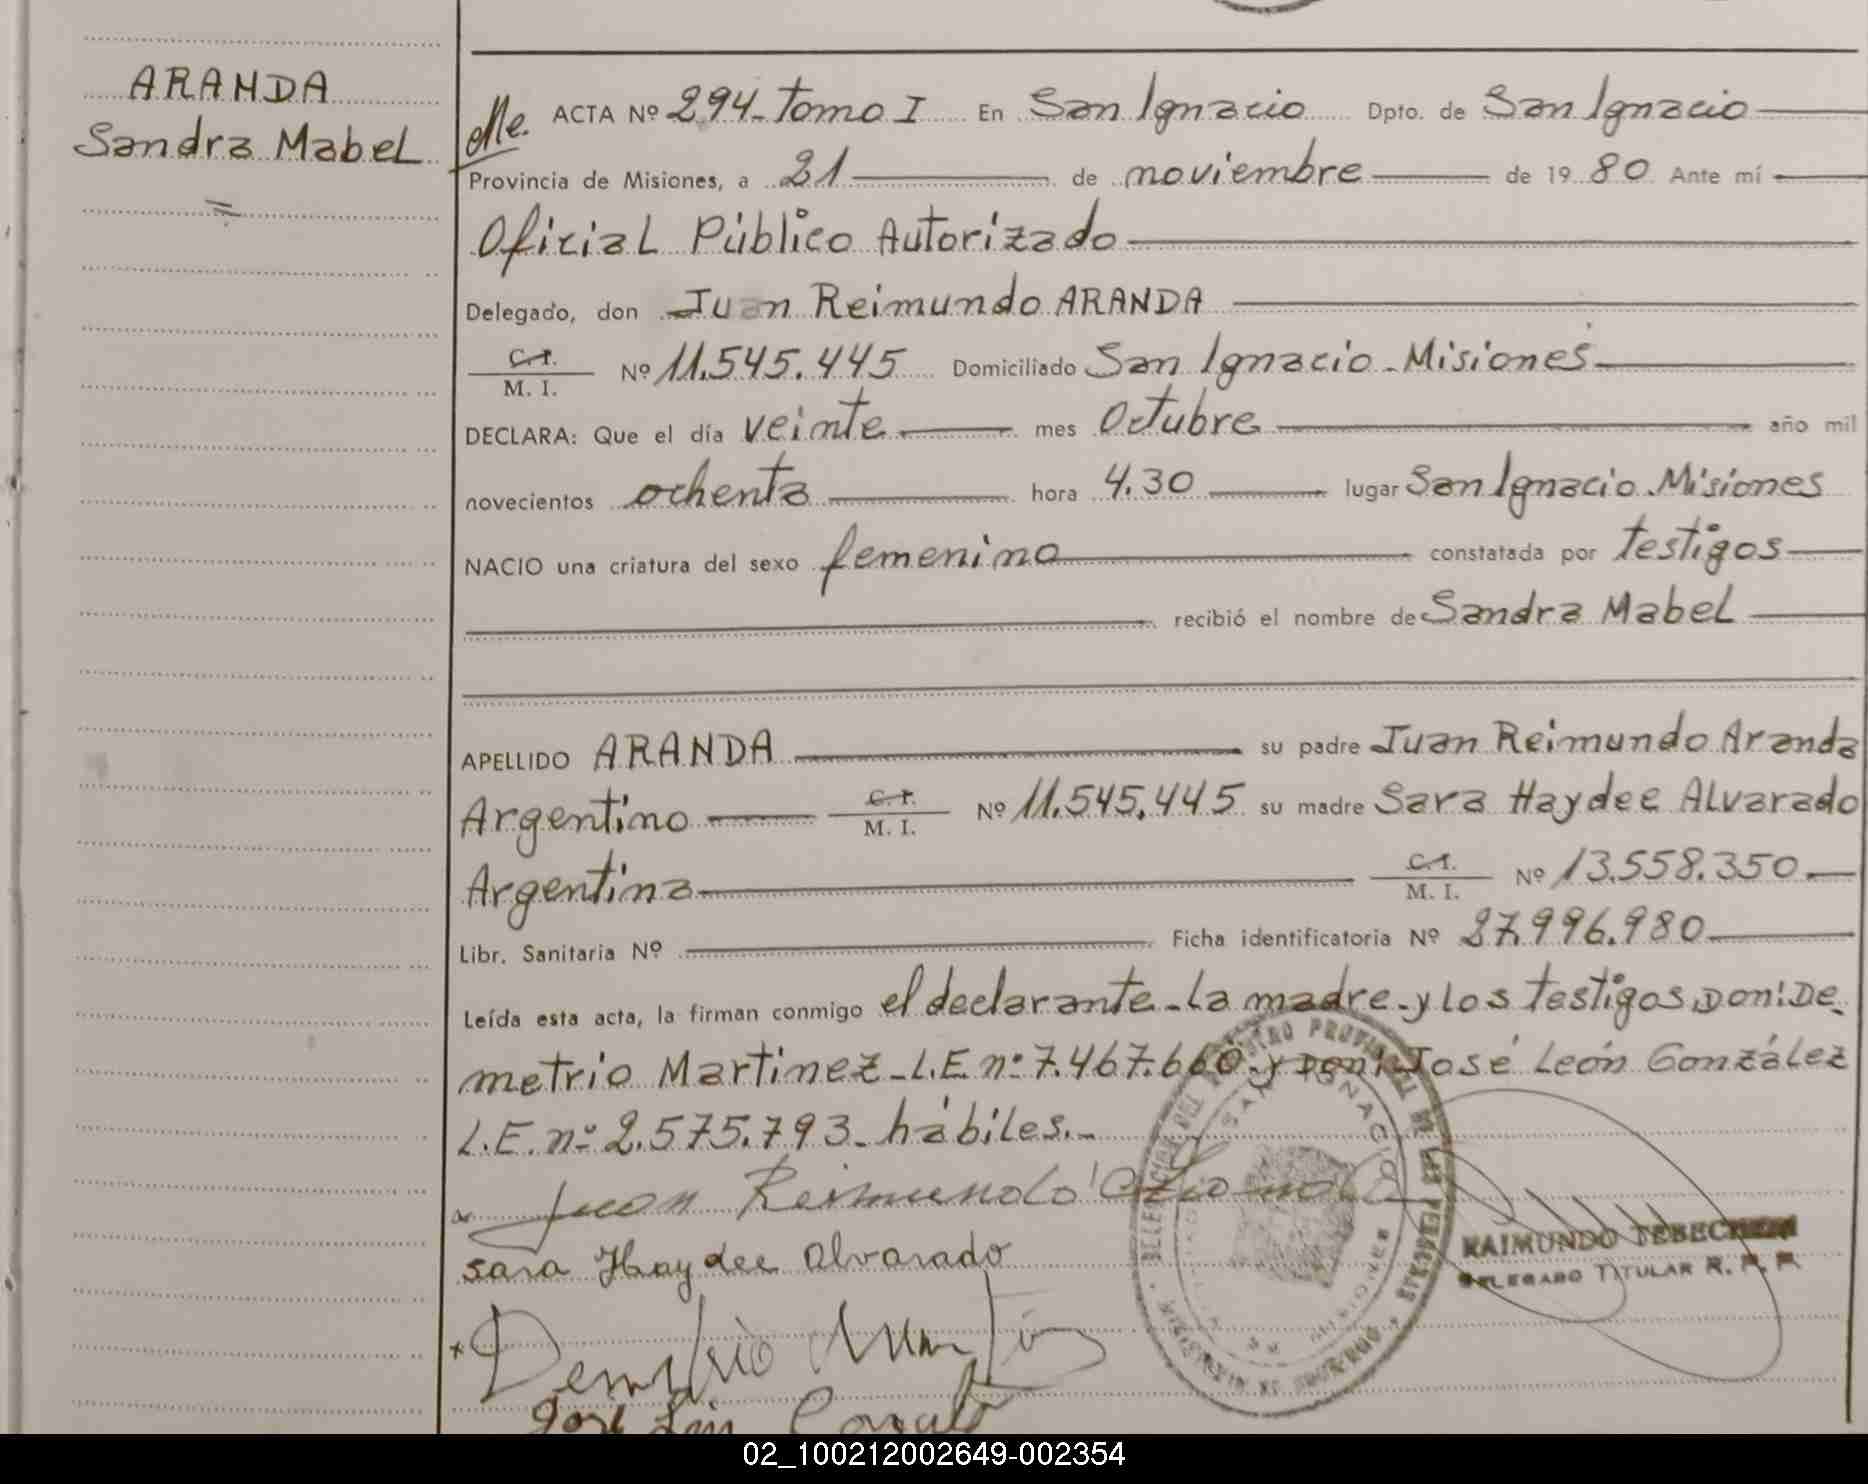 ARANDA
Sandra Mabel
ACTA Nº 294-Tomo I En San Ignacio Dpto. de San Ignacio
Provincia de Misiones, a 21 de noviembre de 1980 Ante mí
Oficial Público Autorizado
Delegado, don Juan Reimundo ARANDA
C.I.
M. I. Nº 11.545.445 Domiciliado San Ignacio - Misiones
DECLARA: Que el día veinte mes Octubre año mil
novecientos ochenta hora 4.30 lugar San Ignacio. Misiones
NACIO una criatura del sexo femenino constatada por testigos
recibió el nombre de Sandra Mabel
APELLIDO ARANDA su padre Juan Reimundo Aranda
Argentino C.I. M. I. Nº 11.545.445 su madre Sara Haydee Alvarado
Argentina C.I. M. I. Nº 13.558.350.
Libr. Sanitaria Nº Ficha identificatoria Nº 27.996.980
Leída esta acta, la firman conmigo el declarante-la madre-y los testigos Don: De-
metrio Martinez-L.E. nº 7.467.660-y Don: José León González
L.E. nº 2.575.793- hábiles.-
Juan Reimundo
sara Haydee alvarado
RAIMUNDO
DELEGADO TITULAR R. P. P.
SAN IGNACIO
MISIONES
02_100212002649-002354